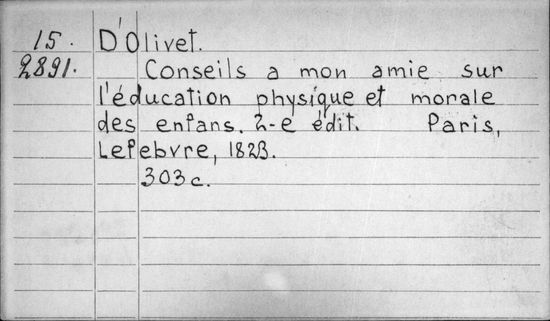 15. D'Olivet.
2891. Conseils a mon amie sur
l'éducation physique et morale
des enfans. 2-e édit. Paris,
Lefebvre, 1823.
303 c.